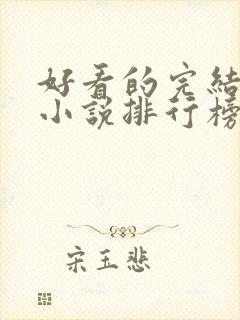 好看的完结
小说排行榜
宋玉悲